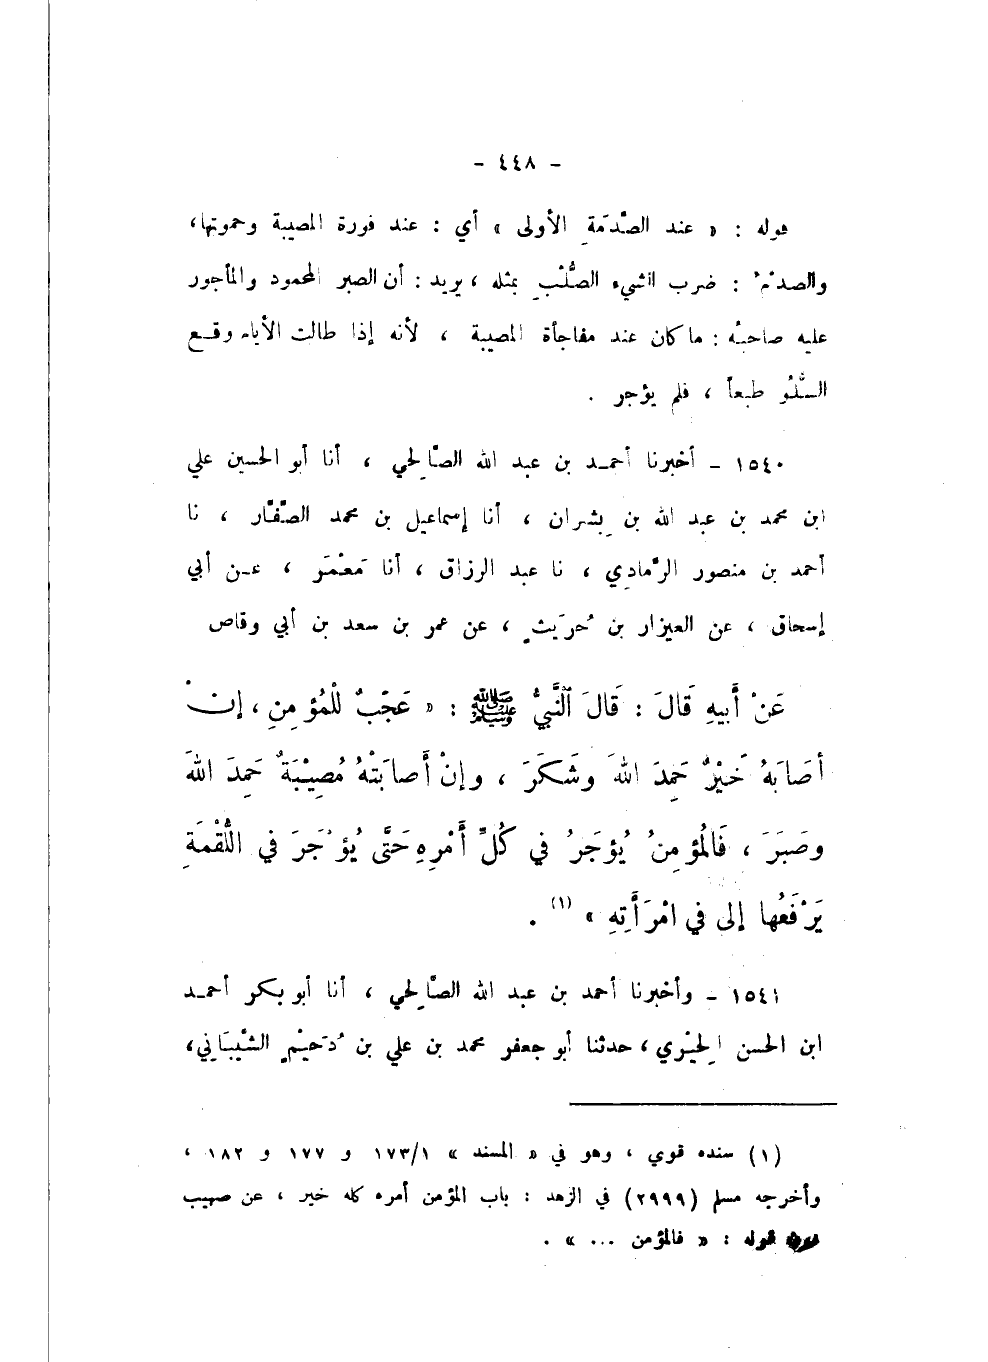 - ٤٤٨ -
قوله : « عند الصَّدمَةِ الأولى » أي : عند فورة المصيبة وحموتها،
والصدمُ : ضرب الشيء الصُّلْبِ بمثله ، يريد : أن الصبر المحمود والمأجور
عليه صاحبُه : ما كان عند مفاجأة المصيبة ، لأنه إذا طالت الأيام وقع
السُّلُوُ طبعاً ، فلم يؤجر .
١٥٤٠ - أخبرنا أحمد بن عبد الله الصَّالِحي ، أنا أبو الحسين علي
ابن محمد بن عبد الله بن بِشران ، أنا إسماعيل بن محمد الصَّفَّار ، نا
أحمد بن منصور الرَّمادِي ، نا عبد الرزاق ، أنا مَعْمَر ، عن أبي
إسحاق ، عن العيزار بن حُرَيثٍ ، عن عمر بن سعد بن أبي وقاص
عَنْ أَبِيهِ قَالَ : قَالَ النَّبِيُّ ﷺ : « عَجَبٌ لِلْمُؤمِنِ ، إنْ
أصَابَهُ خَيْرٌ حَمِدَ اللهَ وشَكَرَ ، وإنْ أَصابَتْهُ مُصِيْبَةٌ حَمِدَ اللهَ
وصَبَرَ ، فَالمُؤمِنُ يُؤجَرُ في كُلِّ أَمْرِهِ حَتَّى يُؤْجَرَ في اللُّقْمَةِ
يَرْفَعُها إلى في امْرَأَتِهِ » (١) .
١٥٤١ - وأخبرنا أحمد بن عبد الله الصَّالِحي ، أنا أبو بكر أحمد
ابن الحسن الحِيْري ، حدثنا أبو جعفر محمد بن علي بن دُحَيْمٍ الشَّيبَاني،
(١) سنده قوي ، وهو في « المسند » ١٧٣/١ و ١٧٧ و ١٨٢ ،
وأخرجه مسلم (٢٩٩٩) في الزهد : باب المؤمن أمره كله خير ، عن صهيب
دون قوله : « فالمؤمن ... » .